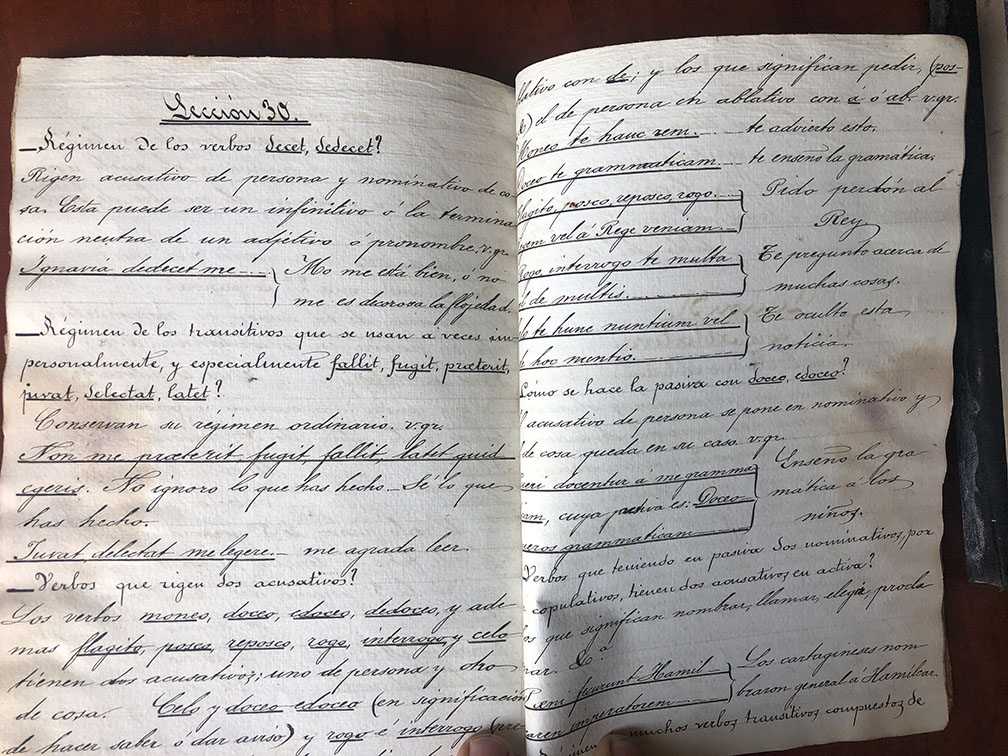 Lección 30.
—Régimen de los verbos decet, dedecet?
Rigen acusativo de persona y nominativo de co
sa. Esta puede ser un infinitivo ó la termina
ción neutra de un adjetivo ó pronombre, v.gr.
Ignavia dedecet me ---- } No me está bien, ó no
me es decorosa la flojedad.
—Régimen de los transitivos que se usan á veces im
personalmente, y especialmente fallit, fugit, præterit,
juvat, delectat, latet?
Conservan su régimen ordinario. v.gr.
Non me præterit fugit, fallit, latet quid
egeris. No ignoro lo que has hecho.—Sé lo que
has hecho.
Juvat, delectat me legere.— me agrada leer.
—Verbos que rigen dos acusativos?
Los verbos moneo, doceo, edoceo, dedoceo, y ade
mas flagito, posco, reposco, rogo, interrogo y celo
tienen dos acusativos; uno de persona y otro
de cosa. Celo y doceo edoceo (en significación
de hacer saber ó dar aviso) y rogo é interrogo (pre
ablativo con de; y los que significan pedir, (pos-
el de persona en ablativo con á ó ab. v.gr.
Moneo te hauc rem. ---- te advierto esto.
Doceo te grammaticam --- te enseño la gramática.
flagito, posco, reposco, rogo. } Pido perdón al
vel á Rege veniam. Rey.
Rogo, interrogo te multa } Te pregunto acerca de
de multis. muchas cosas.
te hunc nuntium vel } Te oculto esta
hoc nuntio. noticia.
Cómo se hace la pasiva con doceo, edoceo?
El acusativo de persona se pone en nominativo y
de cosa queda en su caso. v.gr.
docentur á me gramma } Enseño la gra
cuya activa es: Doceo mática á los
grammaticam niños.
Verbos que teniendo en pasiva dos nominativos, por
copulativos, tienen dos acusativos en activa?
que significan nombrar, llamar, elegir, procla
mar. &.ª
fecerunt Hamil- } Los cartagineses nom
imperatorem braron general á Hamilcar.
muchos verbos transitivos compuestos de